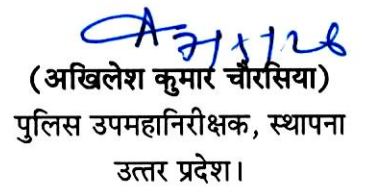 (अखिलेश कुमार चौरसिया)
पुलिस उपमहानिरीक्षक, स्थापना
उत्तर प्रदेश।